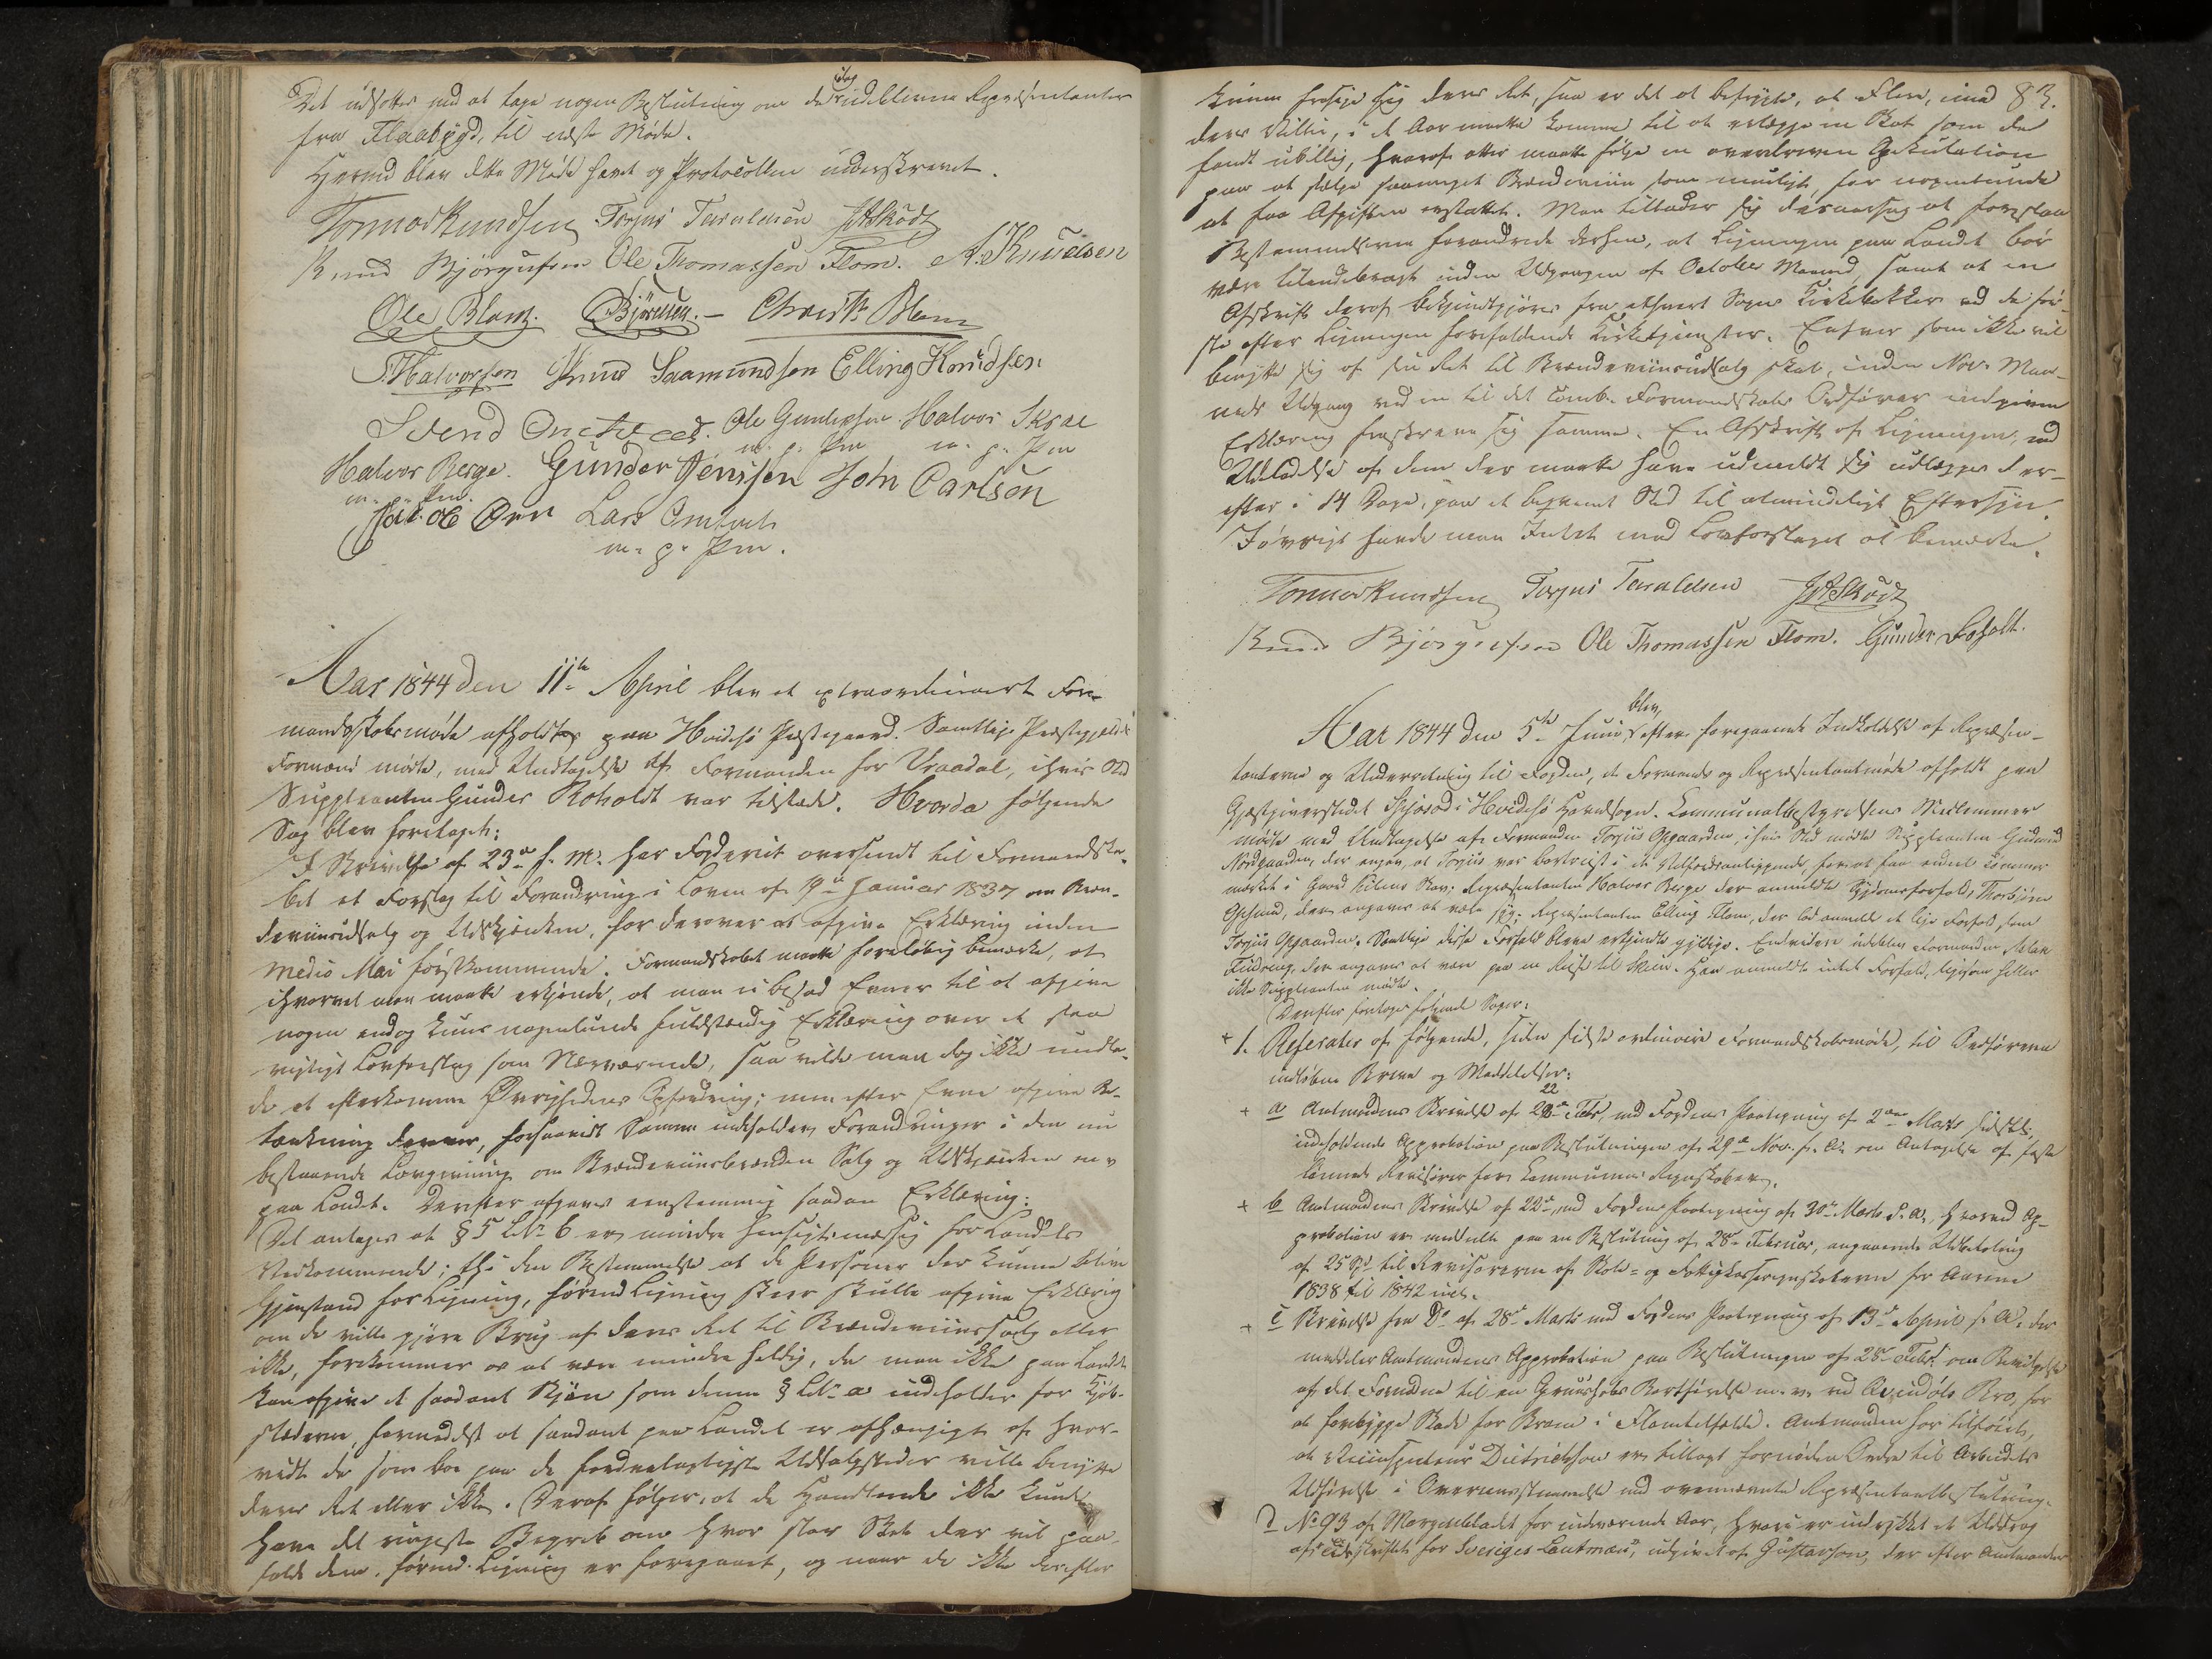 Det udsattes med at tage nogen Beslutning om de idag udeblivene Repræsentanter
fra Flaabygd, til næste Møde.
Hermed blev dette Møde hævet og Protocollen underskrevet.
Tormod Knudsen Torjus Taraldsen JASkødt
Knud Bjørgufsen Ole Thomassen Flom. A. Knudsen
Ole Blom. Bjørnsen.- Christ. Blom
S. Halvorsen Knud Saamundsen Elling Knudsen
Svend Ole Gunleiksen Halvor Skrae
m. p. Pen m. p. Pen
Halvor Berge. Gunder Jensen John Carlsen
m. p. Pen.
Jacob Lars
m. p. Pen.
Aar 1844 den 11te April blev et extraordinært For-
mandskabsmøde afholdt paa Hvidesø Præstegaard. Samtlige Præstegjeldets
Formænd mødte, med Undtagelse af Formanden for Vraadal, i hvis Sted
Suppleanten Gunder Roholdt var tilstæde. Hvorda følgende
Sag blev foretaget:
I Skrivelse af 23de f. M. har Fogderiet oversendt til Formandska-
bet et Forslag til Forandring i Loven af 19de Januar 1837 om Bræn-
deviinsudsalg og Udskjænken, for derover at afgive Erklæring inden
medio Mai førstkommende. Formandskabet maatte foreløbig bemærke, at
ihvorvel man maatte erkjende, at man ei besad Evner til at afgive
nogen endog kuns nogenlunde fuldstændig Erklæring over et saa
vigtigt Lovforslag som Nærværende, saa vilde man dog ikke undla-
de at efterkomme Øvrighedens Opfordring; men efter Evne afgive Be-
tænkning derover, forsaavidt Samme indeholder Forandringer i den nu
bestaaende Lovgivning om Brændeviinsbrænden Salg og Udskjænken m v
paa Landet. Derefter afgaves eenstemmig saadan Erklæring:
Det antages at § 5 Litr. b er mindre hensigtsmæssig for Landets
Vedkommende; thi den Bestemmelse at de Personer der kunne blive
Gjenstand for Ligning, førend Ligning skeer skulle afgive Erklæring
om de ville gjøre Brug af deres Ret til Brændeviinssalg eller
ikke, forekommer os at være mindre heldig, da man ikke paa Landet
kan afgive et saadant Skjøn som denne § Litr. a indeholder for Kjøb-
stæderne, formedelst at saadant paa Landet er afhængigt af hvor-
vidt de som boe paa de fordeelagtigste Udsalgsteder ville benytte
deres Ret eller ikke. Deraf følger, at de Handlende ikke kunde
have det ringeste Begreb om hvor stor Skat der vil paa-
falde dem, førend Ligning er foregaaet, og naar de ikke derefter
83.
kunne frasige sig deres Ret, saa er det at befrygte, at Flere, imod
deres Villie, i et Aar maatte komme til at erlægge en Skat som de
fandt ubillig, hvoraf atter maatte følge en overdreven Speculation
paa at sælge saameget Brændeviin som muligt, for nogenlunde
at faa Afgiften erstattet. Man tillader sig desaarsag at foreslaa
Bestemmelserne forandrede derhen, at Ligningen paa Landet bør
være tilendebragt inden Udgangen af October Maaned, samt at en
Afskrift deraf bekjendtgjøres fra ethvert Sogns Kirkebakke ved de før-
ste efter Ligningen forefaldende Kirketjenester. Enhver som ikke vil
benytte sig af sin Ret til Brændeviinsudsalg skal, inden Nov. Maa-
neds Udgang ved en til det comb. Formandskabs Ordfører indgiven
Erklæring fraskrive sig samme. En Afskrift af Ligningen, med
Udeladelse af dem der maatte have udmeldt sig udlægges der-
efter i 14 Dage, paa et beqvemt Sted til almindeligt Eftersyn.
Iøvrigt havde man Intet med Lovforslaget at bemærke.
Tormod Knudsen Torjus Taraldsen JASkødt
Knud Bjørgufsen Ole Thomassen Flom. Gunder Roholdt.
Aar 1844 den 5te Juni, blev, efter foregaaende Indkaldelse af Repræsen-
tanterne og Underretning til Fogden, et Formands og Repræsentantmøde afholdt paa
Gjæstgiverstedet i Hvidesø Hovedsogn. Communalbestyrelsens Medlemmer
mødte med Undtagelse af Formanden Torjus Opgaarden, i hvis Sted mødte Suppleanten Gunder
Nordgaarden, der angav, at Torjus var bortreist
Repræsentanten Halvor Berge der anmeldte Sygdomsforfald; Thorbjørn
der angaves at være syg; Repræsentanten Elling Flom, der lod anmelde et lige Forfald, som
Torjus Opgaarden. Samtlige disse Forfald bleve erkjendte gyldige. Endvidere udeblev Formanden
der angaves at være paa en Reise til Skien. Han anmeldte intet Forfald, ligesom heller
ikke Suppleanten mødte.
Derefter foretoges følgende Sager:
+ 1. Referates af følgende, siden sidste ordinaire Formandskabsmøde, til Ordføreren
indløbne Breve og Meddelelser:
+ a Amtmandens Skrivelse af 22de Febr., med Fogdens Paategning af 2den Marts sidstl.,
indeholdende Approbation paa Beslutningen af 29de Nov. f. A. om Antagelse af faste
lønnede Revisorer for Communens Regnskaber.
+ b Amtmandens Skrivelse af 22de, med Fogdens Paategning af 30te Marts d. A. hvorved Ap-
probation er meddeelt paa en Beslutning af 28de Februar, angaaende Udbetaling
af 25 Spd til Revisorerne af Skole- og Fattigkasseregnskaberne for Aarene
1838 til 1842 incl.
+ c Skrivelse fra Do af 28de Marts med Fogdens Paategning af 13de April d. A. der
meddeler Amtmandens Approbation paa Beslutningen af 28de Febr. om Bevilgelse
af det Fornødne til en Gruushobs Bortførelse m. v. ved Bro, for
at forebygge Skade for Broen i Flomtilfælde. Amtmanden har tilføiet,
at Veiinspecteur Diderichsen er tillagt fornøden Ordre til Arbeidets
Udførelse i Overeensstemmelse med ovennævnte Repræsentantbeslutning.
d No 93 af Morgenbladet for indeværende Aar, hvori er indrykket et Uddrag
af Tidsskriftet for Sveriges Landtmän", udgivet af Gustavson, der efter Amtmandens